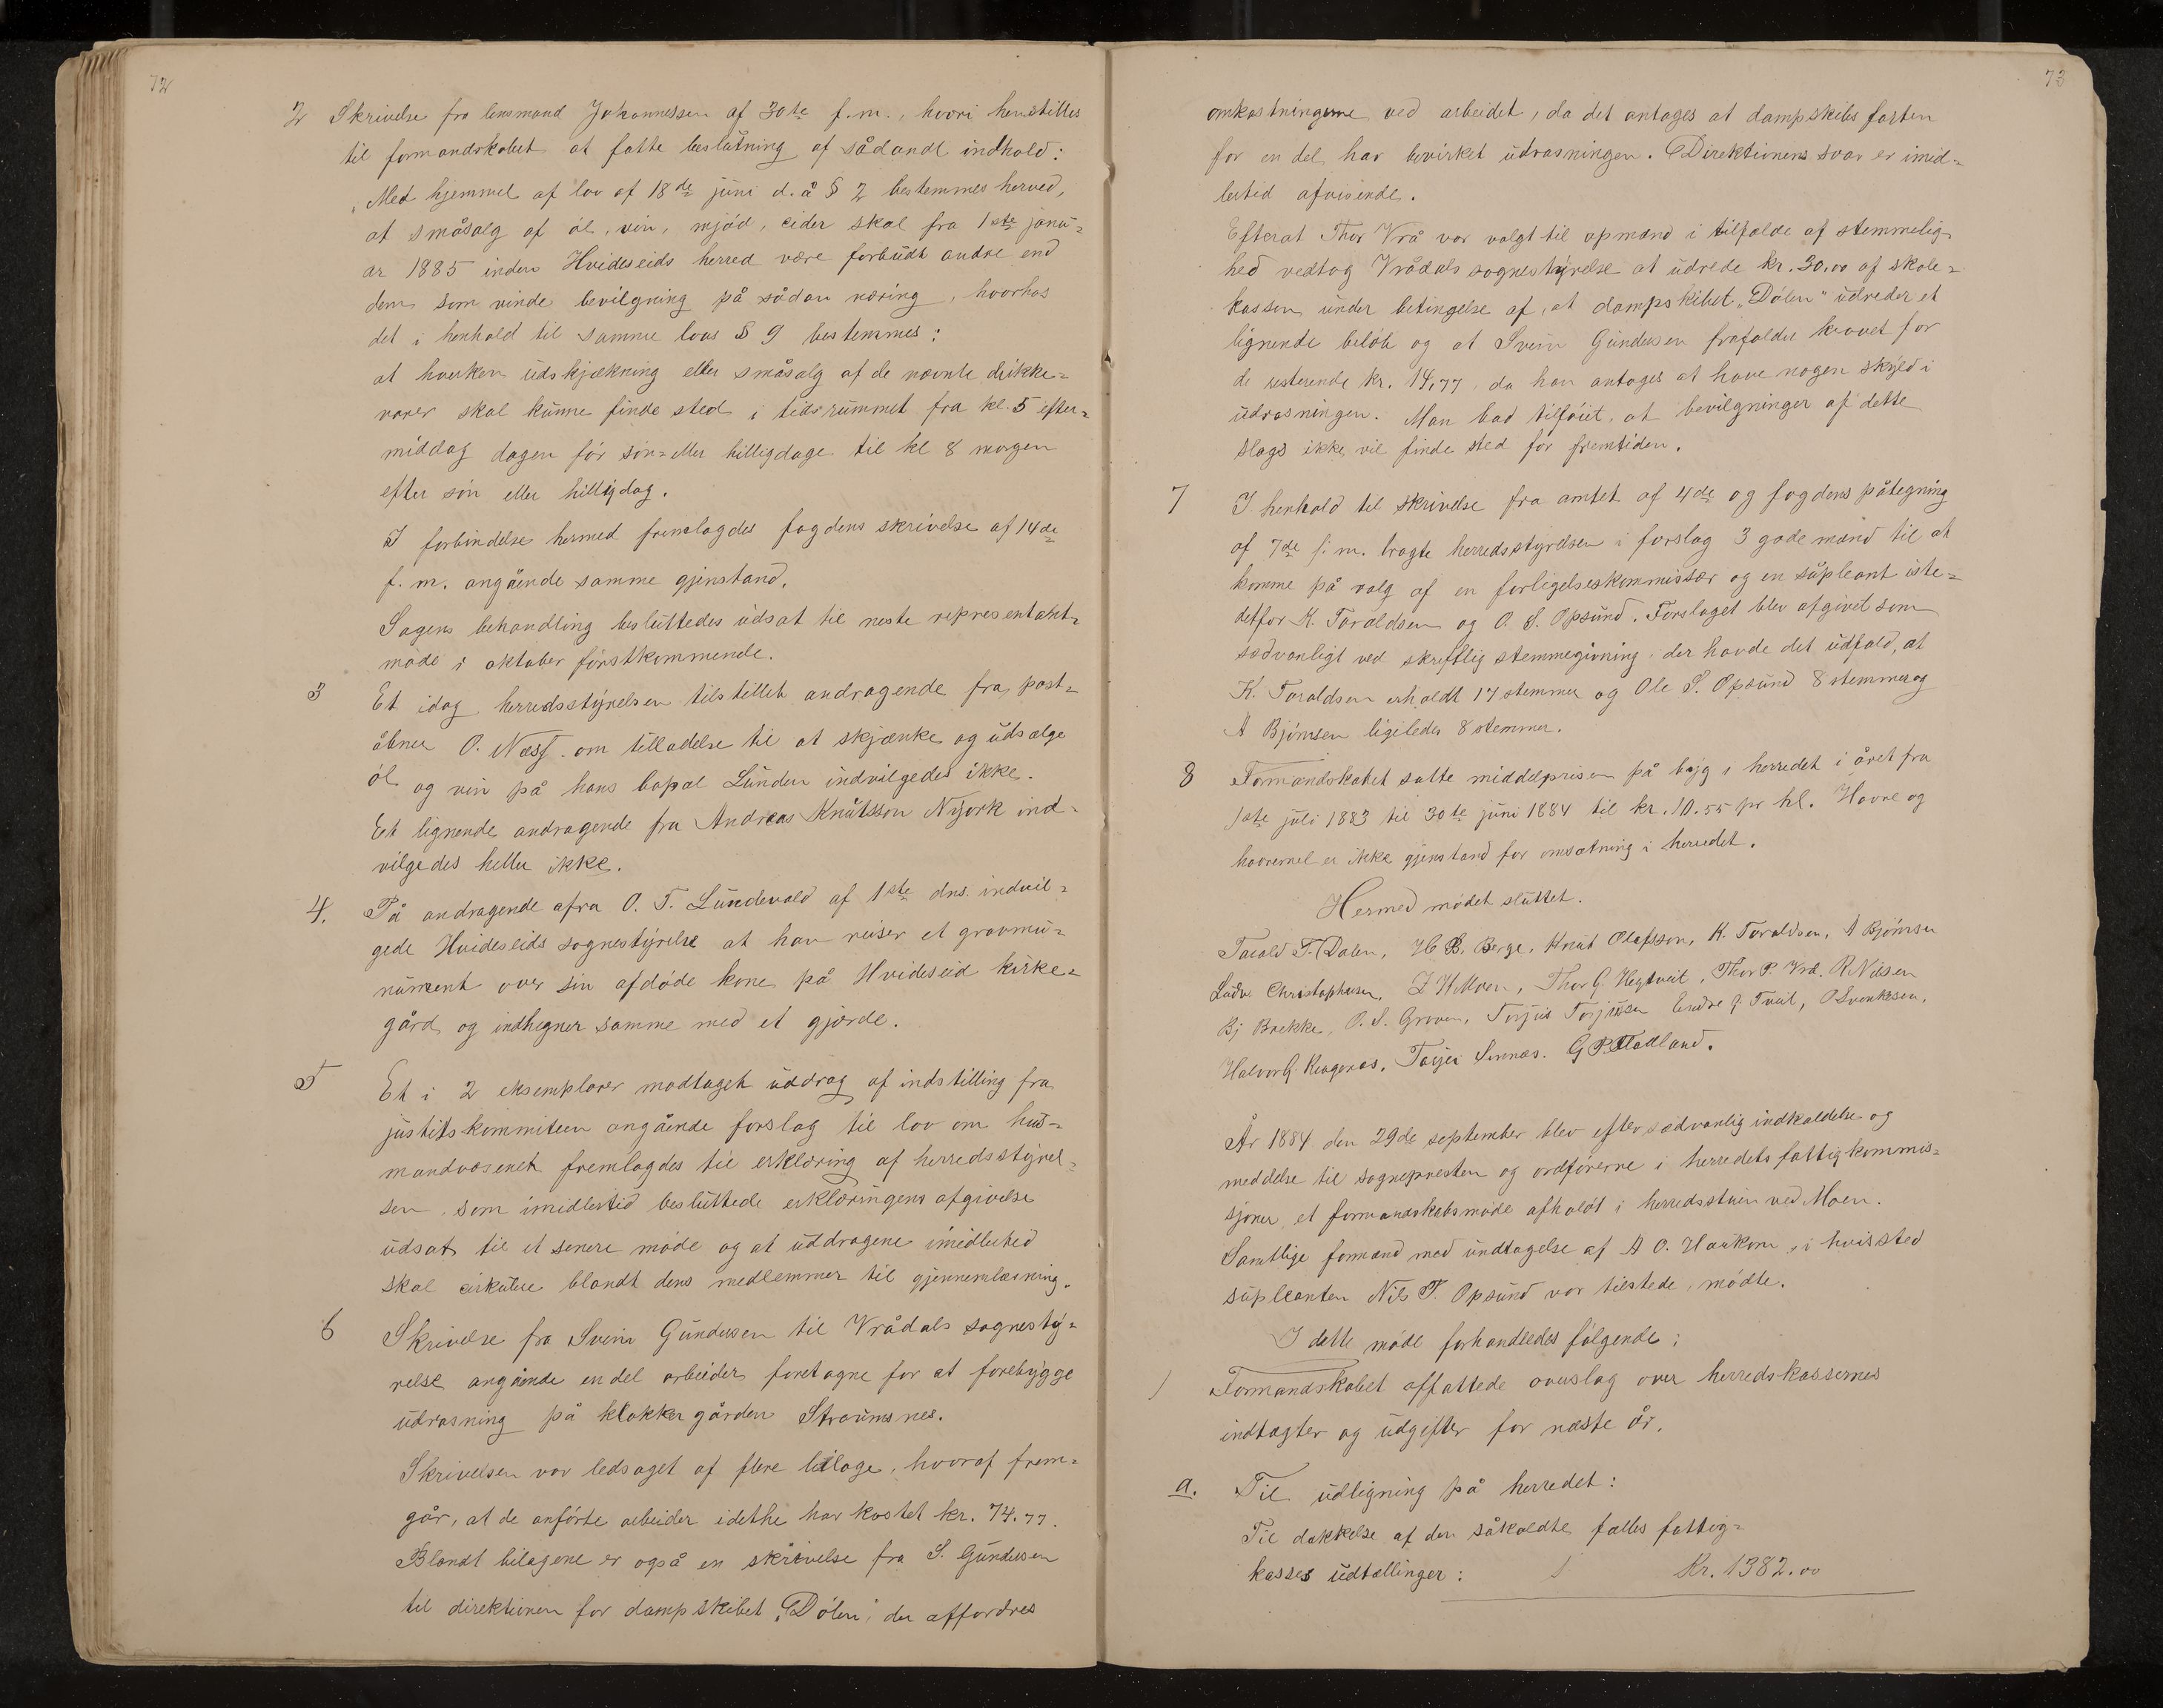 72
2 Skrivelse fra lensmand Johannessen af 30te f.m., hvori henstilles
til formandskabet at fatte beslutning af sådandt indhold:
„Med hjemmel af lov af 18de juni d. å § 2 bestemmes herved,
at småsalg af øl, vin, mjød, cider skal fra 1ste janu=
ar 1885 inden Hvideseids herred være forbudt andre end
dem som vinde bevilgning på sådan næring, hvorhos
det i henhold til samme lovs § 9 bestemmes:
at hverken udskjænkning eller småsalg af de nævnte drikke=
varer skal kunne finde sted i tidsrummet fra kl. 5 efter=
middag dagen før søn= eller helligdage til kl 8 morgen
efter søn eller helligdag.
I forbindelse hermed fremlagdes fogdens skrivelse af 14de
f. m. angående samme gjenstand.
Sagens behandling besluttedes udsat til neste representant=
møde i oktober førstkommende.
3 Et idag herredsstyrelsen tilstillet andragende fra post=
åbner O. Næss om tilladelse til at skjænke og udsælge
øl og vin på hans bopæl Lunden indvilgedes ikke.
Et lignende andragende fra Andreas Knutsson Nyork ind=
vilgedes heller ikke.
4. På andragende afra O. T. Lundevald af 1ste dns. indvil=
gede Hvideseids sognestyrelse at han reiser et gravmu=
nument over sin afdøde kone på Hvideseid kirke=
gård og indhegner samme med et gjærde.
5 Et i 2 eksemplarer modtaget uddrag af indstilling fra
justitskommiteen angående forslag til lov om hus=
mandvæsenet fremlagdes til erklæring af herredsstyrel=
sen, som imidlertid besluttede erklæringens afgivelse
udsat til et senere møde og at uddragene imidlertid
skal cirkulere blandt dens medlemmer til gjennemlæsning.
6 Skrivelse fra Svein Gundersen til Vrådals sognesty=
relse angående en del arbeider foretagne for at forebygge
udrasning på klokkergården Straumsnes.
Skrivelsen var ledsaget af flere bilage, hvoraf frem=
går, at de anførte arbeider idethe har kostet kr. 74.77.
Blandt bilagene er også en skrivelse fra S. Gundersen
til direktionen for dampskibet „Dølen“, der affordres
73
omkostningerne ved arbeidet, da det antages at dampskibs farten
for en del har bevirket udrasningen. Direktionens svar er imid=
lertid afvisende.
Efterat Thor Vrå var valgt til opmand i tilfælde af stemmelig
hed vedtog Vrådals sognestyrelse at udrede kr. 30.00 af skole=
kassen under betingelse af, at dampskibet „Dølen“ udreder et
lignende beløb og at Svein Gundersen frafalder kravet for
de resterende kr. 14,77, da han antages at have nogen skyld i
udrasningen. Man bad tilføiet, at bevilgninger af dette
slags ikke vil finde sted for fremtiden.
7 I henhold til skrivelse fra amtet af 4de og fogdens påtegning
af 7de f. m. bragte herredsstyrelsen i forslag 3 gode mænd til at
komme på valg af en forligelseskommissær og en supleant iste=
detfor K. Taraldsen og O. S. Opsund. Forslaget blev afgivet som
sædvanligt ved skriftlig stemmegivning, der havde det udfald, at
K. Taraldsen erholdt 17 stemmer og Ole S. Opsund 8 stemmer og
A Bjørnsen ligeledes 8 stemmer.
8 Formandskabet satte middelprisen på byg i herredet i året fra
1ste juli 1883 til 30te juni 1884 til kr. 10.55 pr hl. Havre og
havremel er ikke gjenstand for omsætning i herredet.
Hermed mødet sluttet.
Tarald T. Dalen, H B. Berge, Knut Olafsson, K. Taraldsen, A Bjørnsen
Ludv. Christophersen, Z H Moen, Thor G. Hegtveit, Thor P. Vrå. R Nilsen
Bj Brekke, O. S. Groven, Torjus Torjusen Endre G. Tveit, O Svenksen,
Halvor G. Kragenæs, Tarjei Sinnes. G P Flatland.
År 1884 den 29de september blev efter sædvanlig indkaldelse og
meddelse til sognepresten og ordførerne i herredets fattigkommis=
sjoner et formandskabsmøde afholdt i herredsstuen ved Moen.
Samtlige formænd med undtagelse af A O. Haukom, i hvissted
supleanten Nils T. Opsund var tilstede, mødte.
I dette møde forhandledes følgende:
1 Formandskabet affattede overslag over herredskassernes
indtægter og udgifter for næste år.
a. Til udligning på herredet:
Til dækkelse af den såkaldte fælles fattig=
kasses udtællinger: Kr. 1382.00